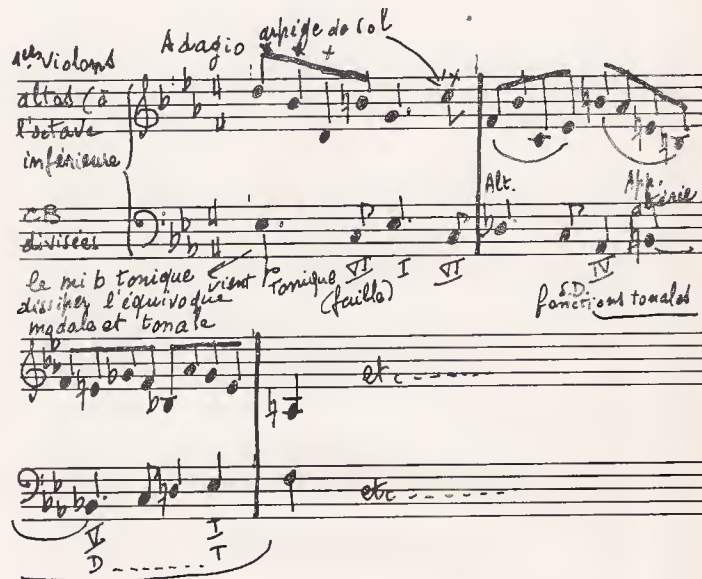 Adagio arpège de sol
1ers Violons
altos (à
l'octave
inférieure
C.B
divisées
Alt.
le mi b tonique vient
dissiper l'équivoque
modale et tonale
Tonique VI I VI
(faille)
S.D. IV
fonctions tonales
etc
etc
V I
D T